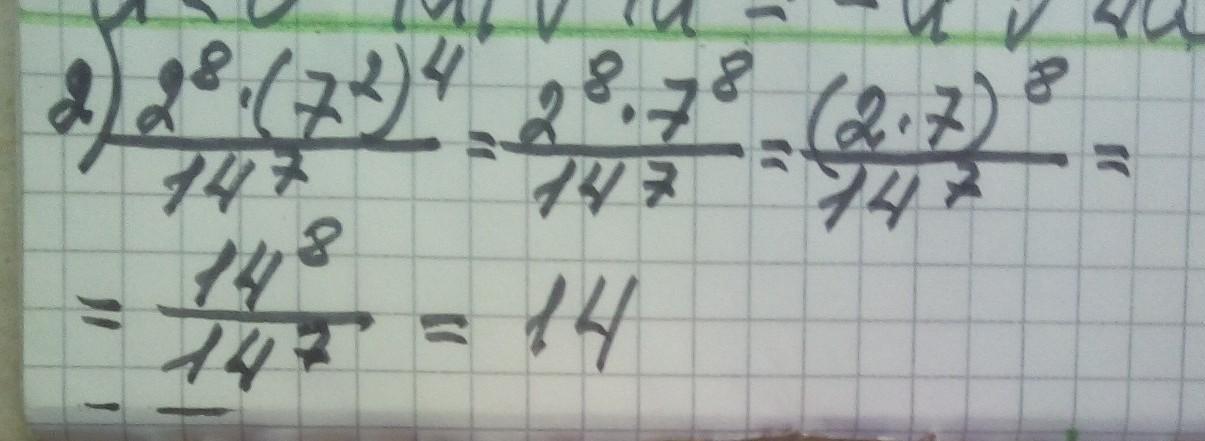 2) 2⁸·(7²)⁴/14⁷ = 2⁸·7⁸/14⁷ = (2·7)⁸/14⁷ =
= 14⁸/14⁷ = 14